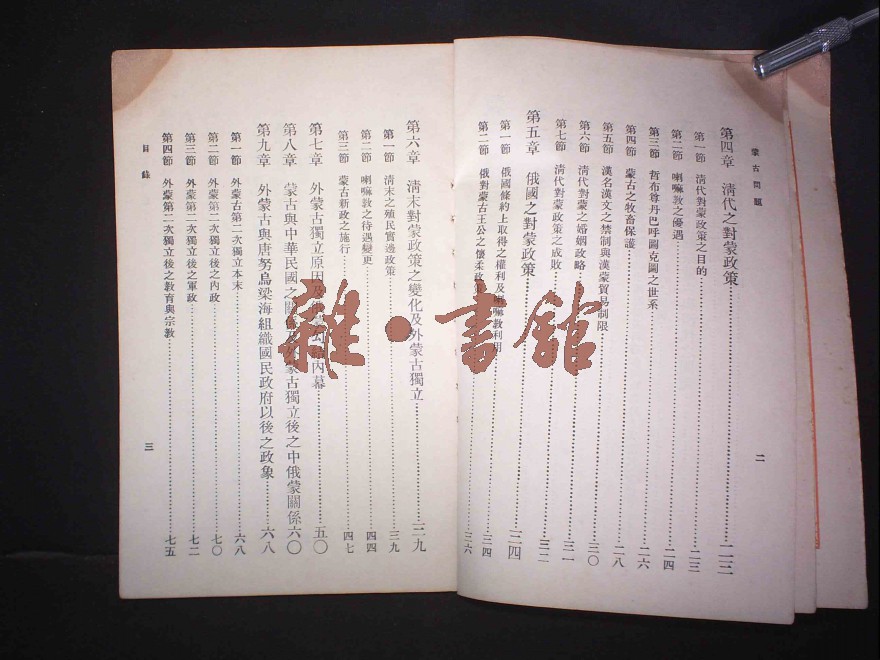 蒙古問題
第四章 清代之對蒙政策……二三
第一節 清代對蒙政策之目的……二三
第二節 喇嘛教之優遇……二四
第三節 哲布尊丹巴呼圖克圖之世系……二六
第四節 蒙古之牧畜保護……二八
第五節 漢名漢文之禁制與漢蒙貿易制限……三〇
第六節 清代對蒙之婚姻政略……三一
第七節 清代對蒙政策之成敗……三二
第五章 俄國之對蒙政策……三四
第一節 俄國條約上取得之權利及喇嘛教利用……三四
第二節 俄對蒙古王公之懷柔政策……三六
二
第六章 清末對蒙政策之變化及外蒙古獨立……三九
第一節 清末之殖民實邊政策……三九
第二節 喇嘛教之待遇變更……四四
第三節 蒙古新政之施行……四七
第七章 外蒙古獨立原因及內幕……五〇
第八章 蒙古與中華民國之關係及外蒙古獨立後之中俄蒙關係六〇
第九章 外蒙古與唐努烏梁海組織國民政府以後之政象……六八
第一節 外蒙古第二次獨立本末……六八
第二節 外蒙第二次獨立後之內政……七〇
第三節 外蒙第二次獨立後之軍政……七二
第四節 外蒙第二次獨立後之教育與宗教……七五
目錄
三
雜·書館